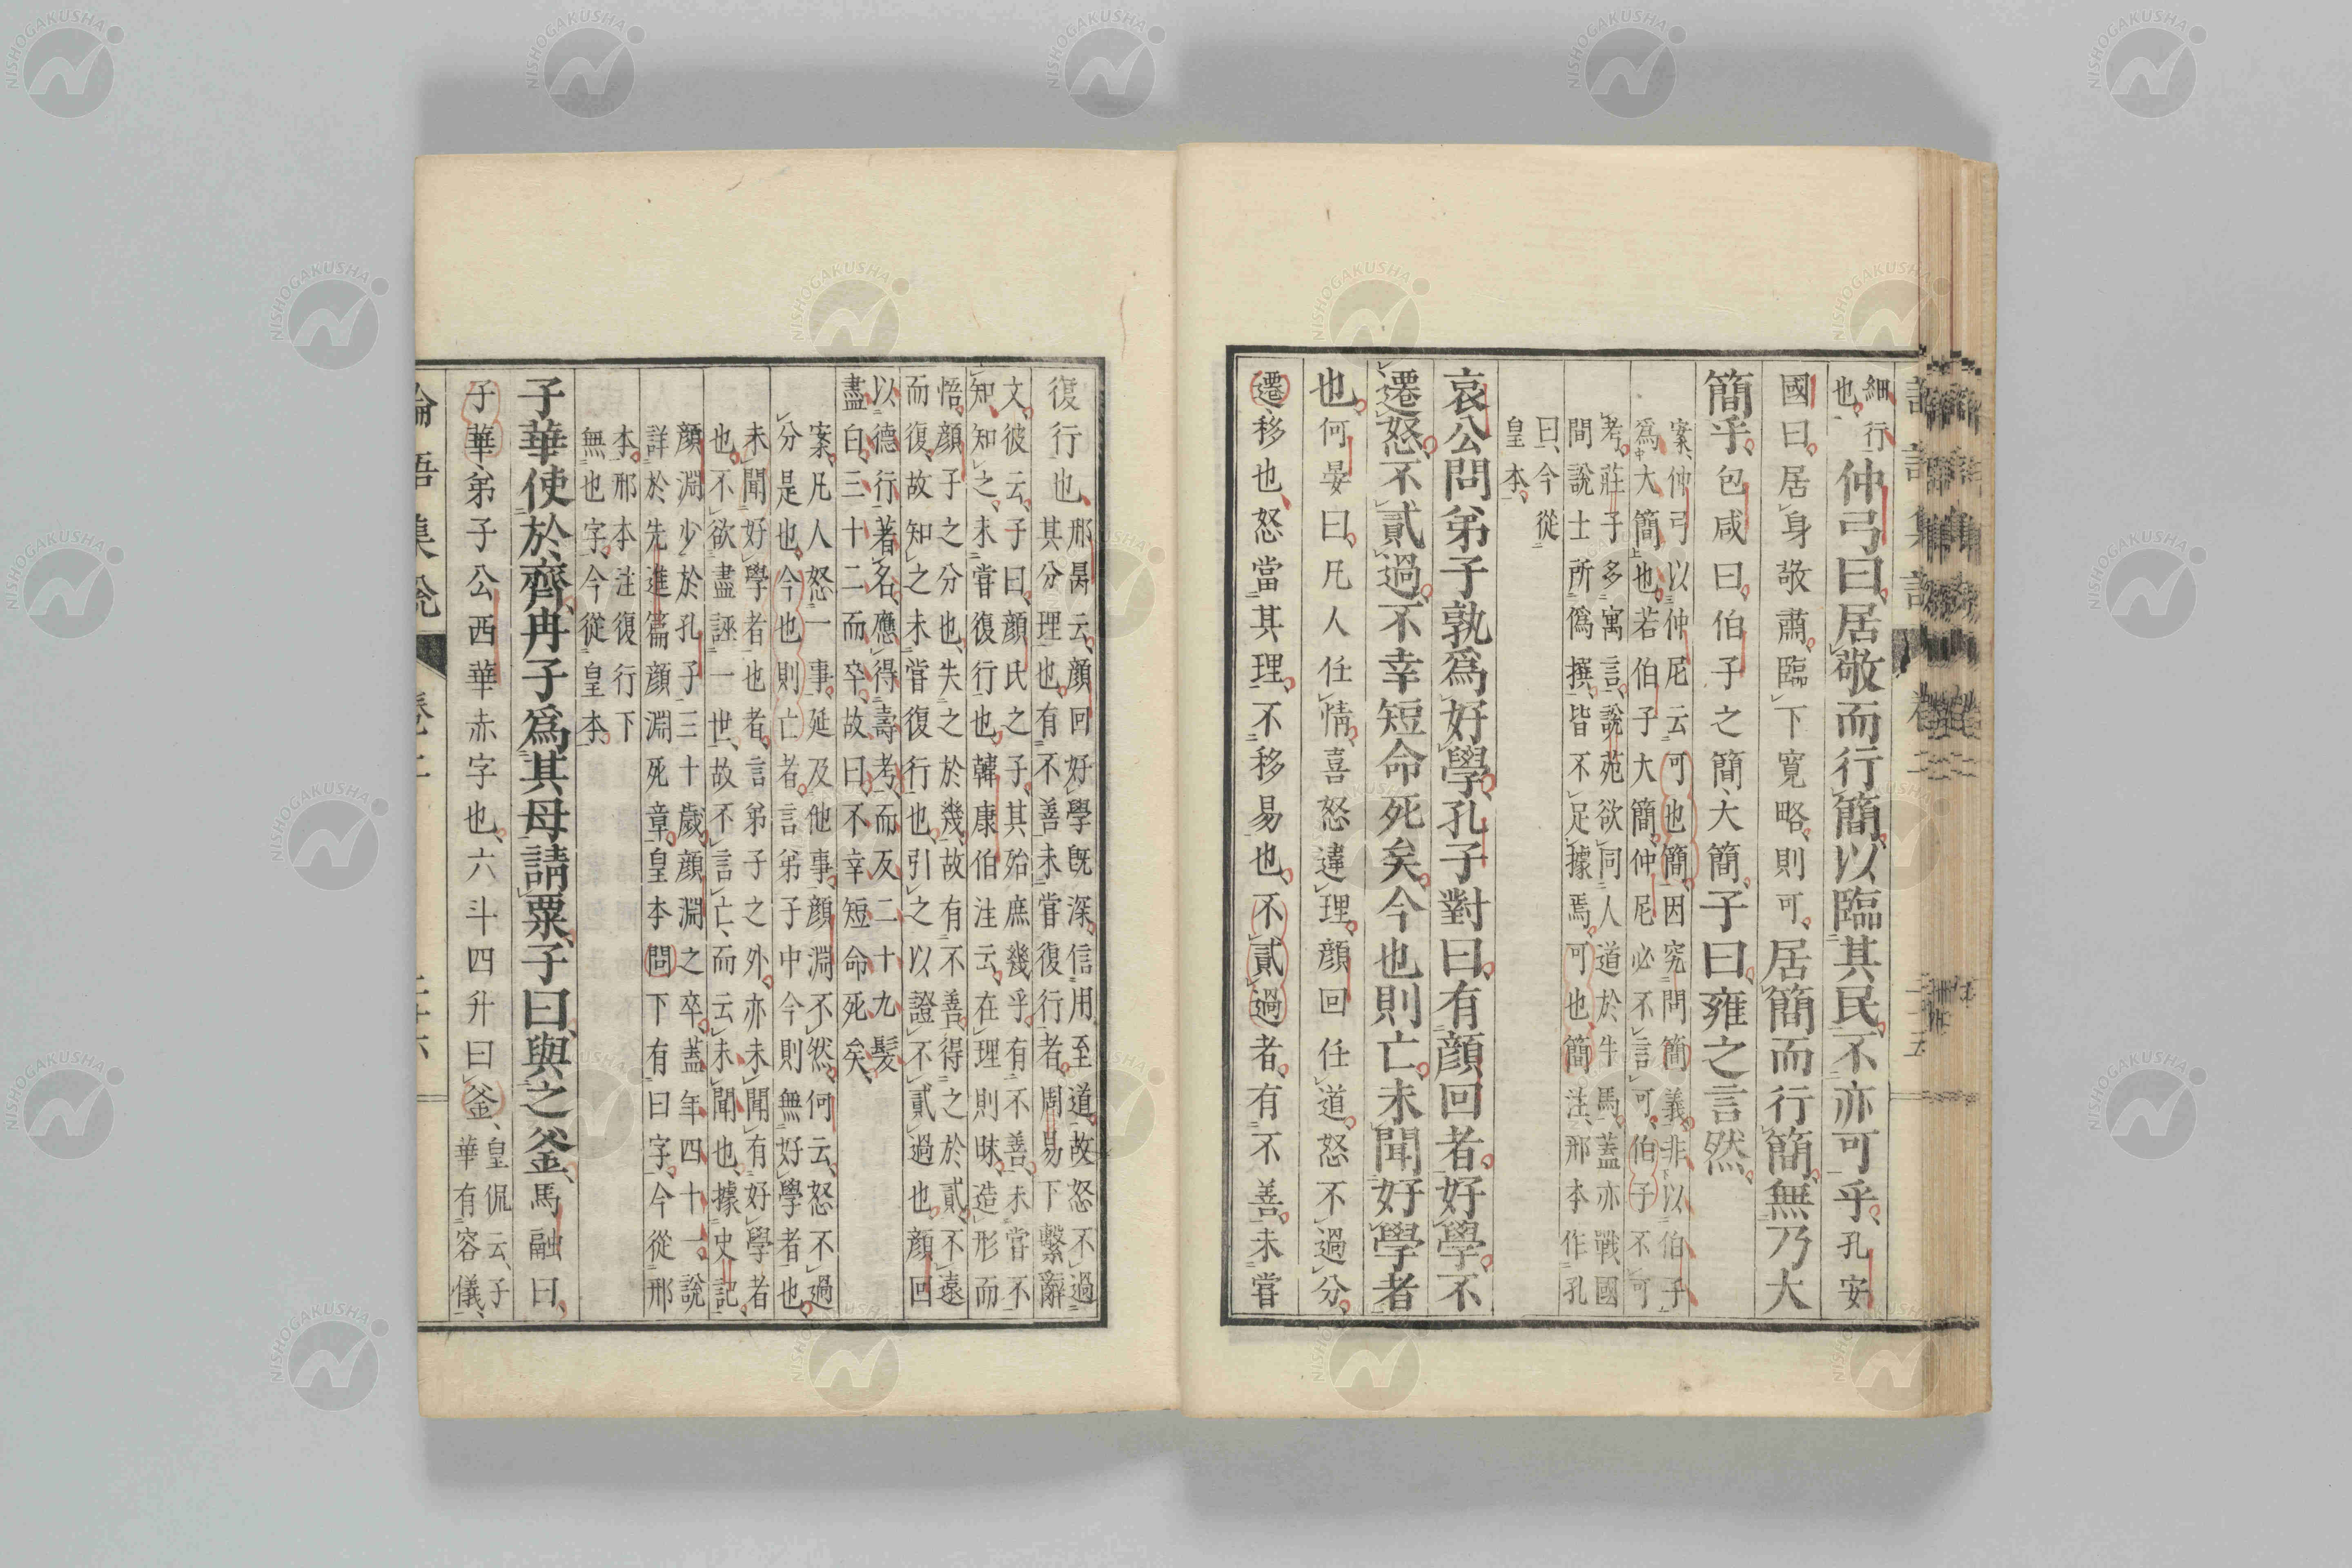 細行
也
仲弓曰居敬而行簡以臨其民不亦可乎孔安
國曰居身敬肅臨下寛略則可居簡而行簡無乃大
簡乎包咸曰伯子之簡大簡子曰雍之言然
案仲弓以仲尼云可也簡因究問簡義非以伯子
爲大簡也若伯子大簡仲尼必不言可伯子不可
考莊子多寓言說苑欲同人道於牛馬蓋亦戰國
間說士所僞撰皆不足據焉可也簡注邢本作孔
曰今從
皇本
哀公問弟子孰爲好學孔子對曰有顔回者好學不
遷怒不貳過不幸短命死矣今也則亡未聞好學者
也何晏曰凡人任情喜怒違理顔回任道怒不過分
遷移也怒當其理不移易也不貳過者有不善未嘗
復行也
邢昺云顔回好學旣深信用至道故怒不過
其分理也有不善未嘗復行者周易下繫辭
文彼云子曰顔氏之子其殆庶幾乎有不善未嘗不
知知之未嘗復行也韓康伯注云在理則昧造形而
悟顔子之分也失之於幾故有不善得之於貳不遠
而復故知之未嘗復行也引之以證不貳過也顔回
以德行著名應得壽考而反二十九髮
盡白三十二而卒故曰不幸短命死矣
案凡人怒一事延及他事顔淵不然何云怒不過
分是也今也則亡者言弟子中今則無好學者也
未聞好學者也者言弟子之外亦未聞有好學者
也不欲盡誣一世故不言亡而云未聞也據史記
顔淵少於孔子三十歲顔淵之卒蓋年四十一說
詳於先進篇顔淵死章皇本問下有曰字今從邢
本邢本注復行下
無也字今從皇本
子華使於齊冉子爲其母請粟子曰與之釜馬融曰
子華弟子公西華赤字也六斗四升曰釜
皇侃云子
華有容儀
NISHOGAKUSHA